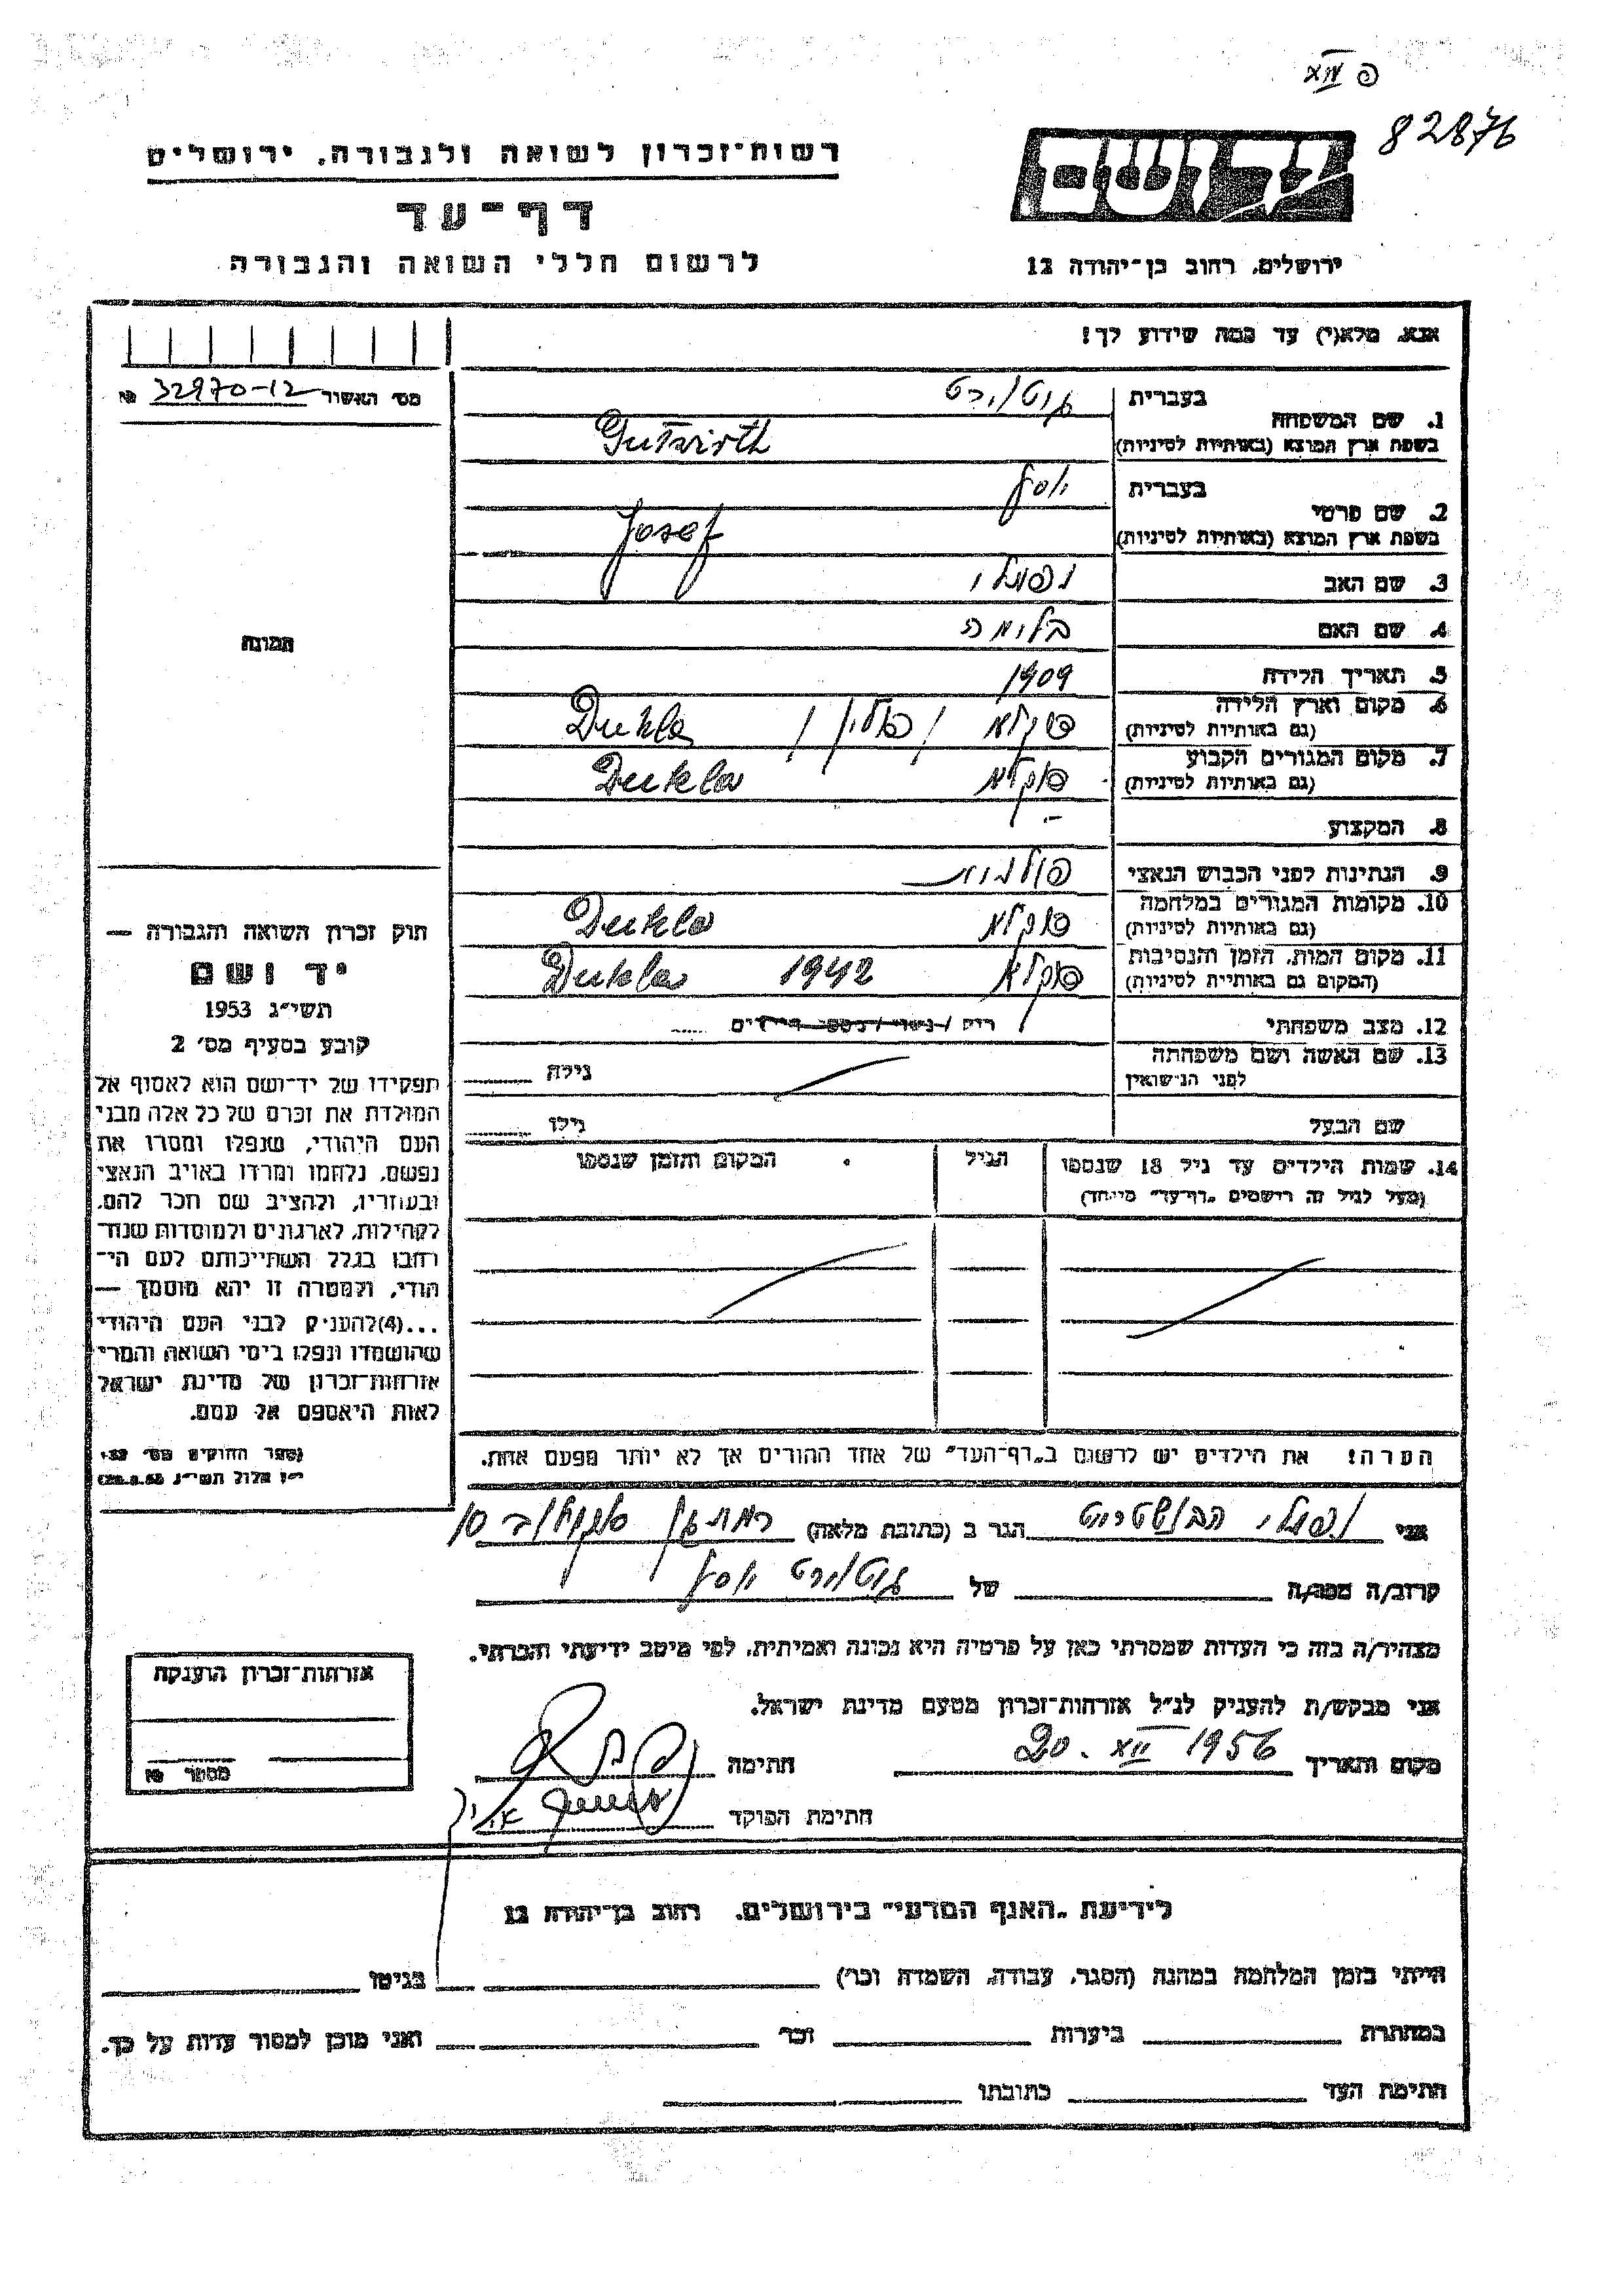 82876
רשות־זכרון לשואה ולגבורה, ירושלים
יד ושם
דף־עד
לרשום חללי השואה והגבורה
ירושלים, רחוב בן־יהודה 12
אנא, מלא(י) עד כמה שידוע לך!
מס׳ האשור № 32970-12
1. שם המשפחה
בעברית גוטוירט
בשפת ארץ המוצא (באותיות לטיניות) Gutwirth
2. שם פרטי
בעברית יוסף
בשפת ארץ המוצא (באותיות לטיניות) Josef
3. שם האב נפתלי
4. שם האם בלומה
5. תאריך הלידה 1909
6. מקום וארץ הלידה דוקלא / פולין / Dukla
(גם באותיות לטיניות)
7. מקום המגורים הקבוע דוקלא Dukla
(גם באותיות לטיניות)
8. המקצוע —
9. הנתינות לפני הכבוש הנאצי פולנית
10. מקומות המגורים במלחמה דוקלא Dukla
(גם באותיות לטיניות)
11. מקום המות, הזמן והנסיבות דוקלא 1942 Dukla
(המקום גם באותיות לטיניות)
12. מצב משפחתי רוק / נשוי / מספר הילדים
13. שם האשה ושם משפחתה גילה
לפני הנישואין
שם הבעל גילו
14. שמות הילדים עד גיל 18 שנספו הגיל המקום והזמן שנספו
(מעל לגיל זה רושמים „דף־עד״ מיוחד)
הערה! את הילדים יש לרשום ב„דף־העד״ של אחד ההורים אך לא יותר מפעם אחת.
תמונה
חוק זכרון השואה והגבורה —
יד ושם
תשי״ג 1953
קובע בסעיף מס׳ 2
תפקידו של יד־ושם הוא לאסוף אל
המולדת את זכרם של כל אלה מבני
העם היהודי, שנפלו ומסרו את
נפשם, נלחמו ומרדו באויב הנאצי
ובעוזריו, ולהציב שם וזכר להם,
לקהילות, לארגונים ולמוסדות שנח־
רבו בגלל השתייכותם לעם הי־
הודי, ולמטרה זו יהא מוסמך —
...(4) להעניק לבני העם היהודי
שהושמדו ונפלו בימי השואה והמרי
אזרחות־זכרון של מדינת ישראל
לאות היאספם אל עמם.
(ספר החוקים מס׳ 132
י״ז אלול תשי״ג 28.8.53)
אני נפתלי הבנשטרייט הגר ב (כתובת מלאה) רמת גן 10
קרוב/ה מכר/ה של גוטוירט יוסף
מצהיר/ה בזה כי העדות שמסרתי כאן על פרטיה היא נכונה ואמיתית, לפי מיטב ידיעתי והכרתי.
אני מבקש/ת להעניק לנ״ל אזרחות־זכרון מטעם מדינת ישראל.
מקום ותאריך 20. XII 1956 חתימה
חתימת הפוקד
אזרחות־זכרון הוענקה
מספר №
לידיעת „האגף המדעי״ בירושלים, רחוב בן־יהודה 12
הייתי בזמן המלחמה במחנה (הסגר, עבודה, השמדה וכר׳) בגיטו
במחתרת ביערות וכר׳ ואני מוכן למסור עדות על כך.
חתימת העד כתובתו